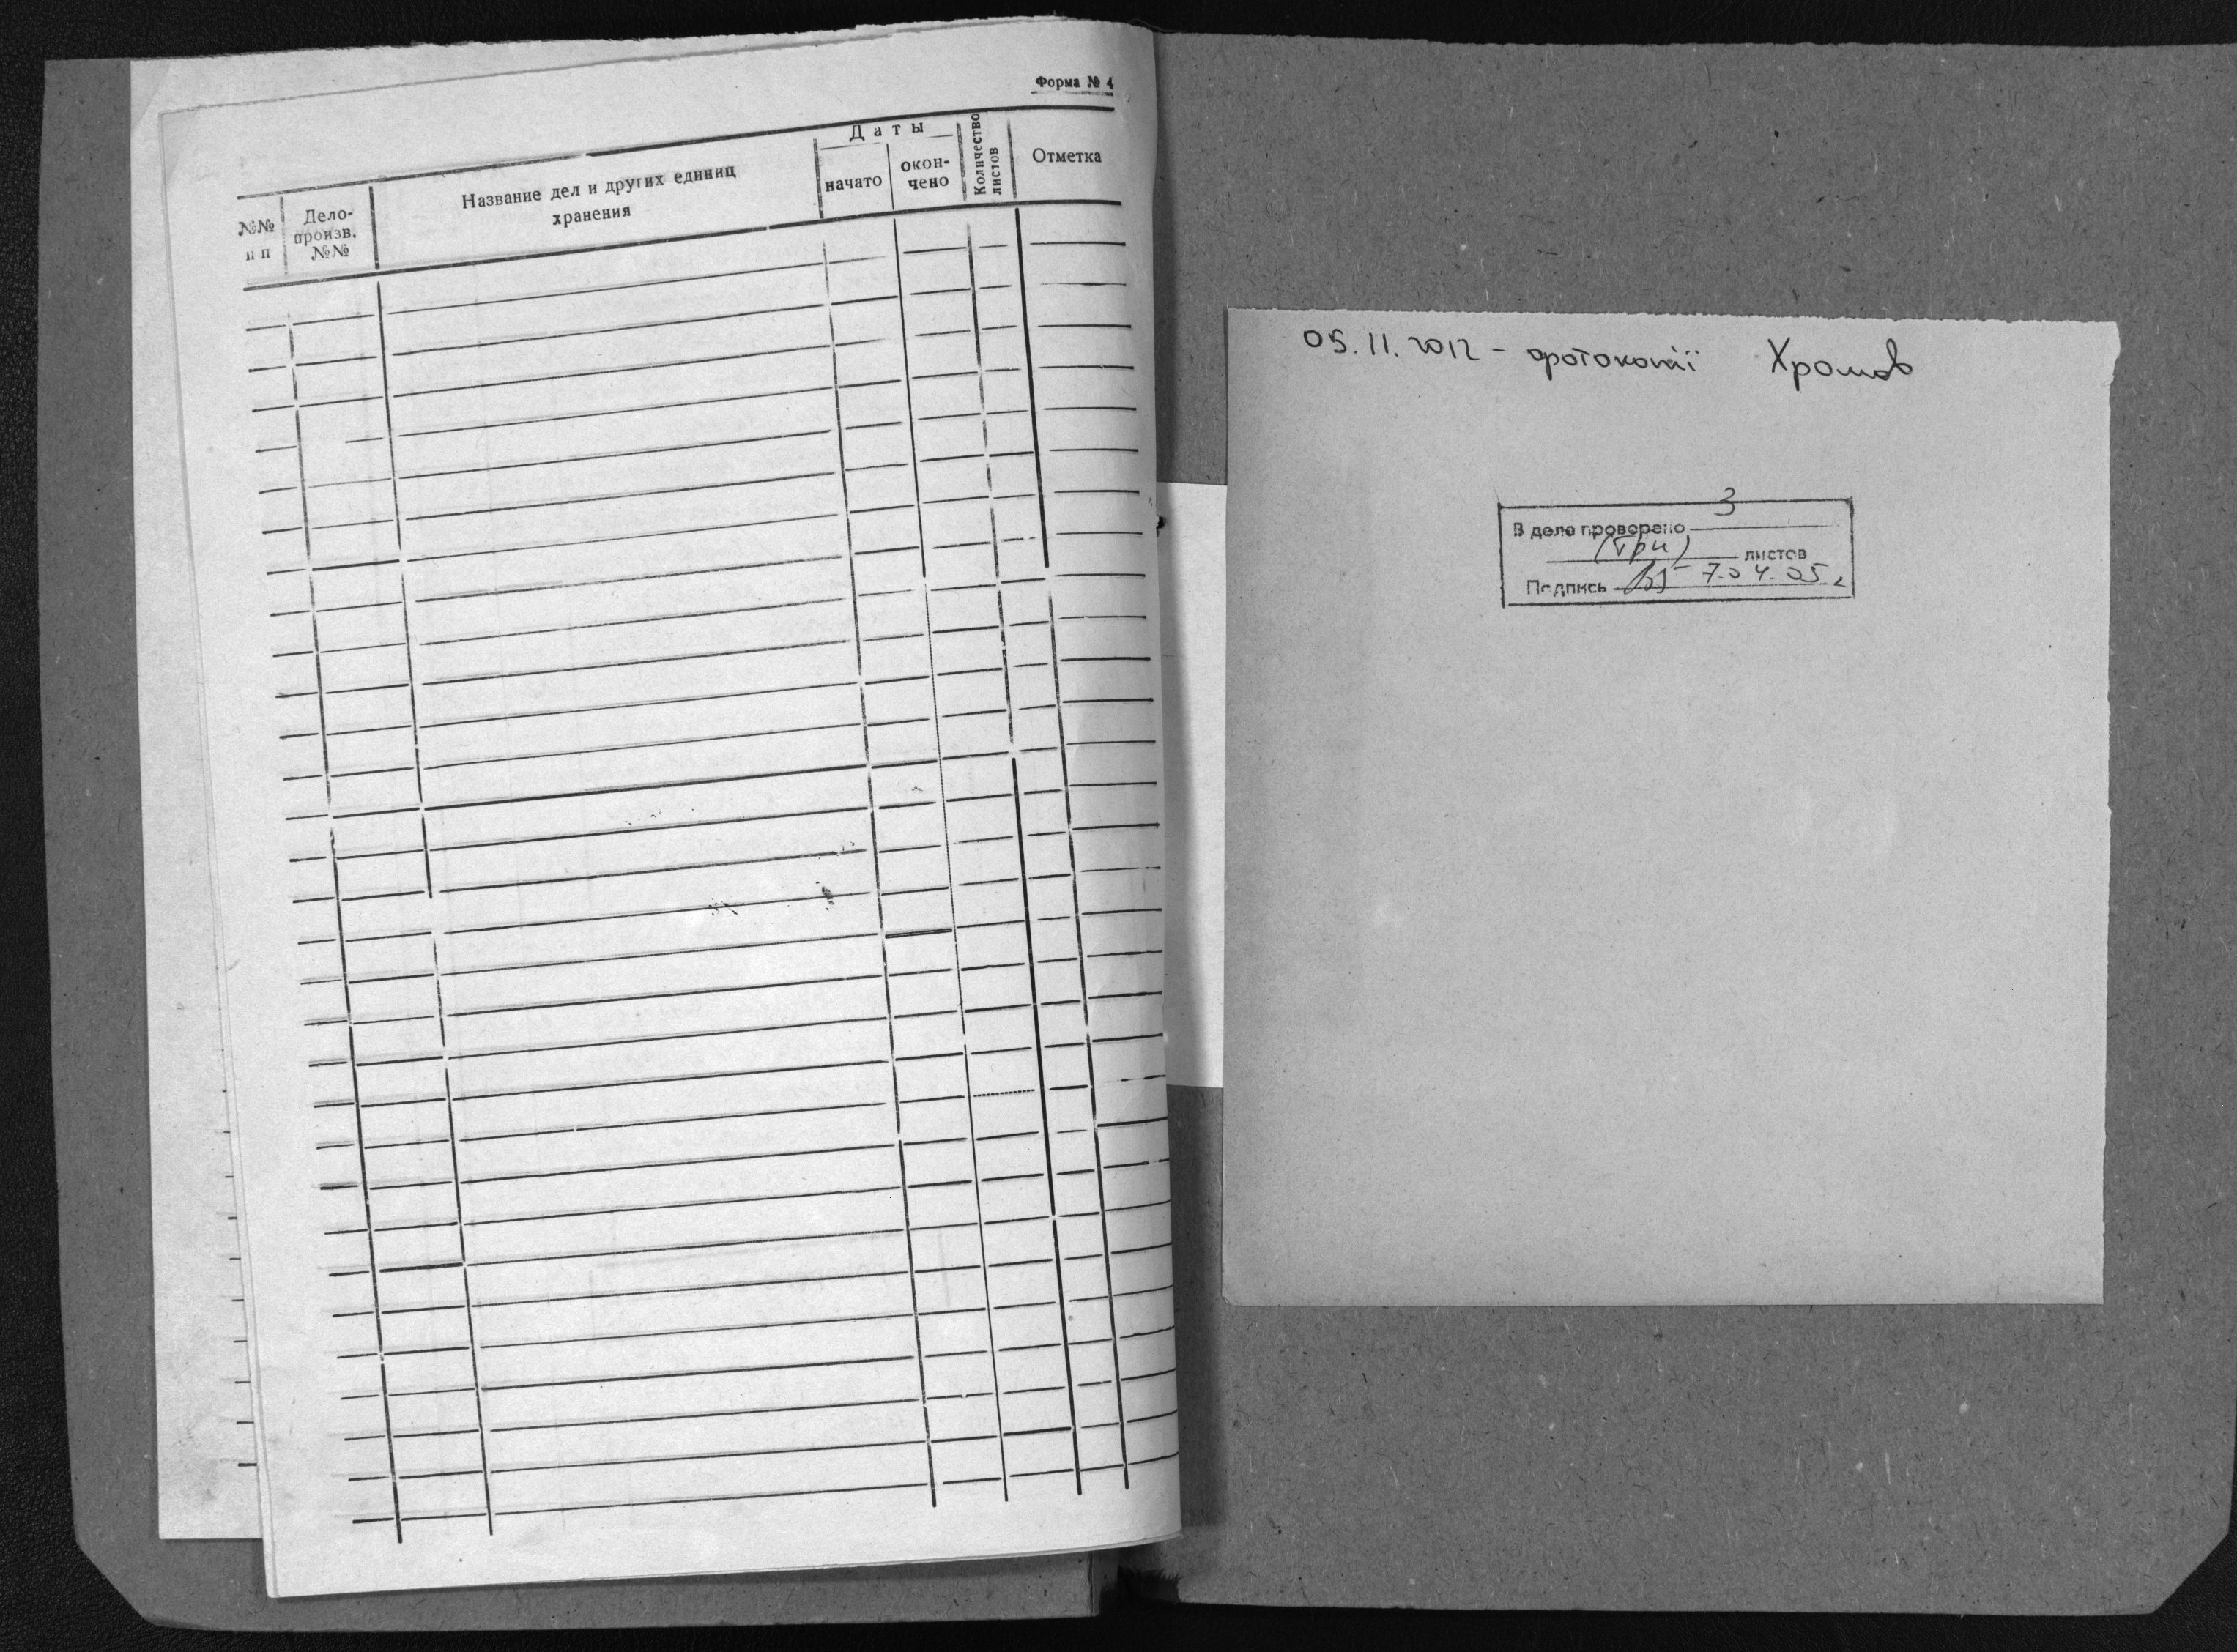 Форма № 4
№№ п п
Дело-
произв.
№№
Название дел и других единиц
хранения
Даты
начато
окон-
чено
Количество
листов
Отметка
05.11.2012 - фотокопії Хромов
В деле проверено 3
(три) листов
Подпись 7.04.05г